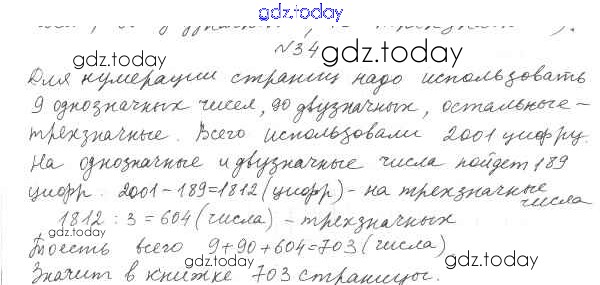 gdz.today
№34
gdz.today
Для нумерации страниц надо использовать
9 однозначных чисел, 90 двузначных, остальные -
трехзначные. Всего использовали 2001 цифру.
На однозначные и двузначные числа пойдет 189
цифр. 2001-189=1812 (цифр) - на трехзначные
числа
1812 : 3 = 604 (числа) - трехзначных
Тоесть всего 9+90+604=703 (числа)
Значит в книжке 703 страницы.
gdz.today
gdz.today
gdz.today
gdz.today
gdz.today